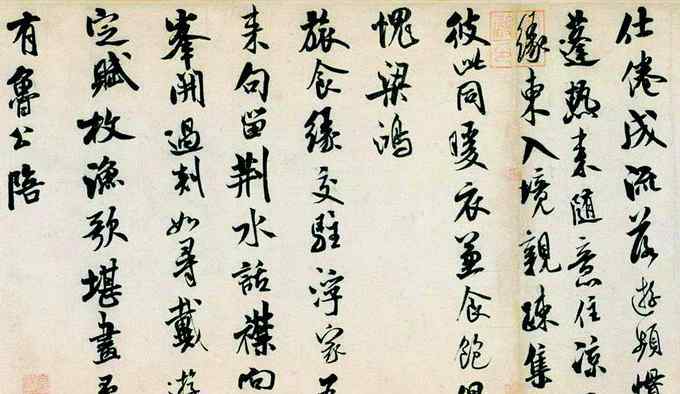 仕倦成流落遊頻慣
蓬熱来随意住凉
緣東入境親疎集
彼此同暖衣兼食飽
愧梁鴻
旅食緣交駐浮家
来句留荆水話襟向
峯開過剡如尋戴遊
定賦枚漁歌堪畫
有魯公陪